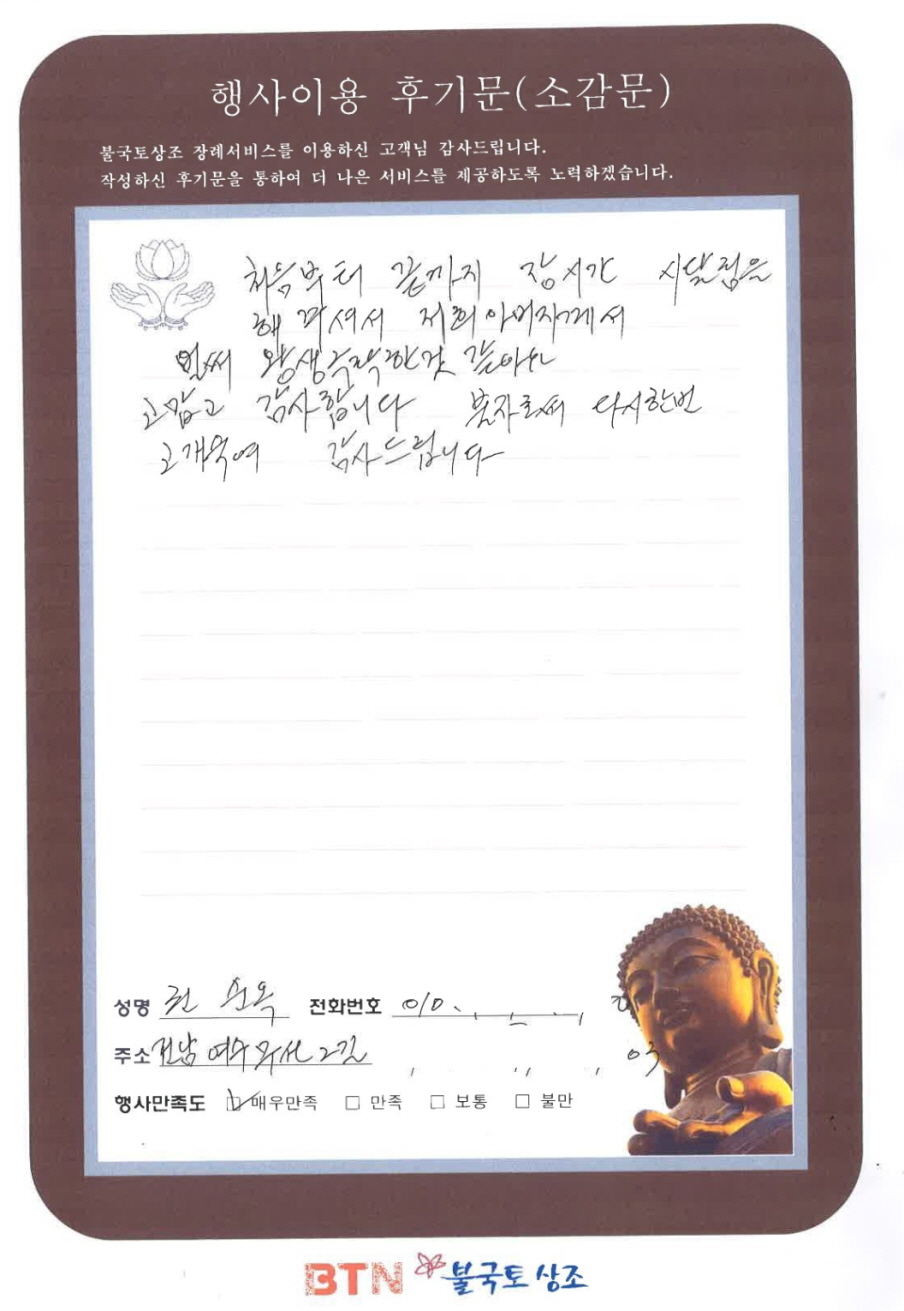 행사이용 후기문(소감문)
불국토상조 장례서비스를 이용하신 고객님 감사드립니다.
작성하신 후기문을 통하여 더 나은 서비스를 제공하도록 노력하겠습니다.
처음부터 끝까지 장시간 시달림을
해 주셔서 저희아버지께서
벌써 왕생극락한것 같아요
고맙고 감사합니다 불자로써 다시한번
고개숙여 감사드립니다
성명 순옥 전화번호 010.
주소 전남 여수 2길 03
행사만족도 매우만족 □ 만족 □ 보통 □ 불만
BTN 불국토상조